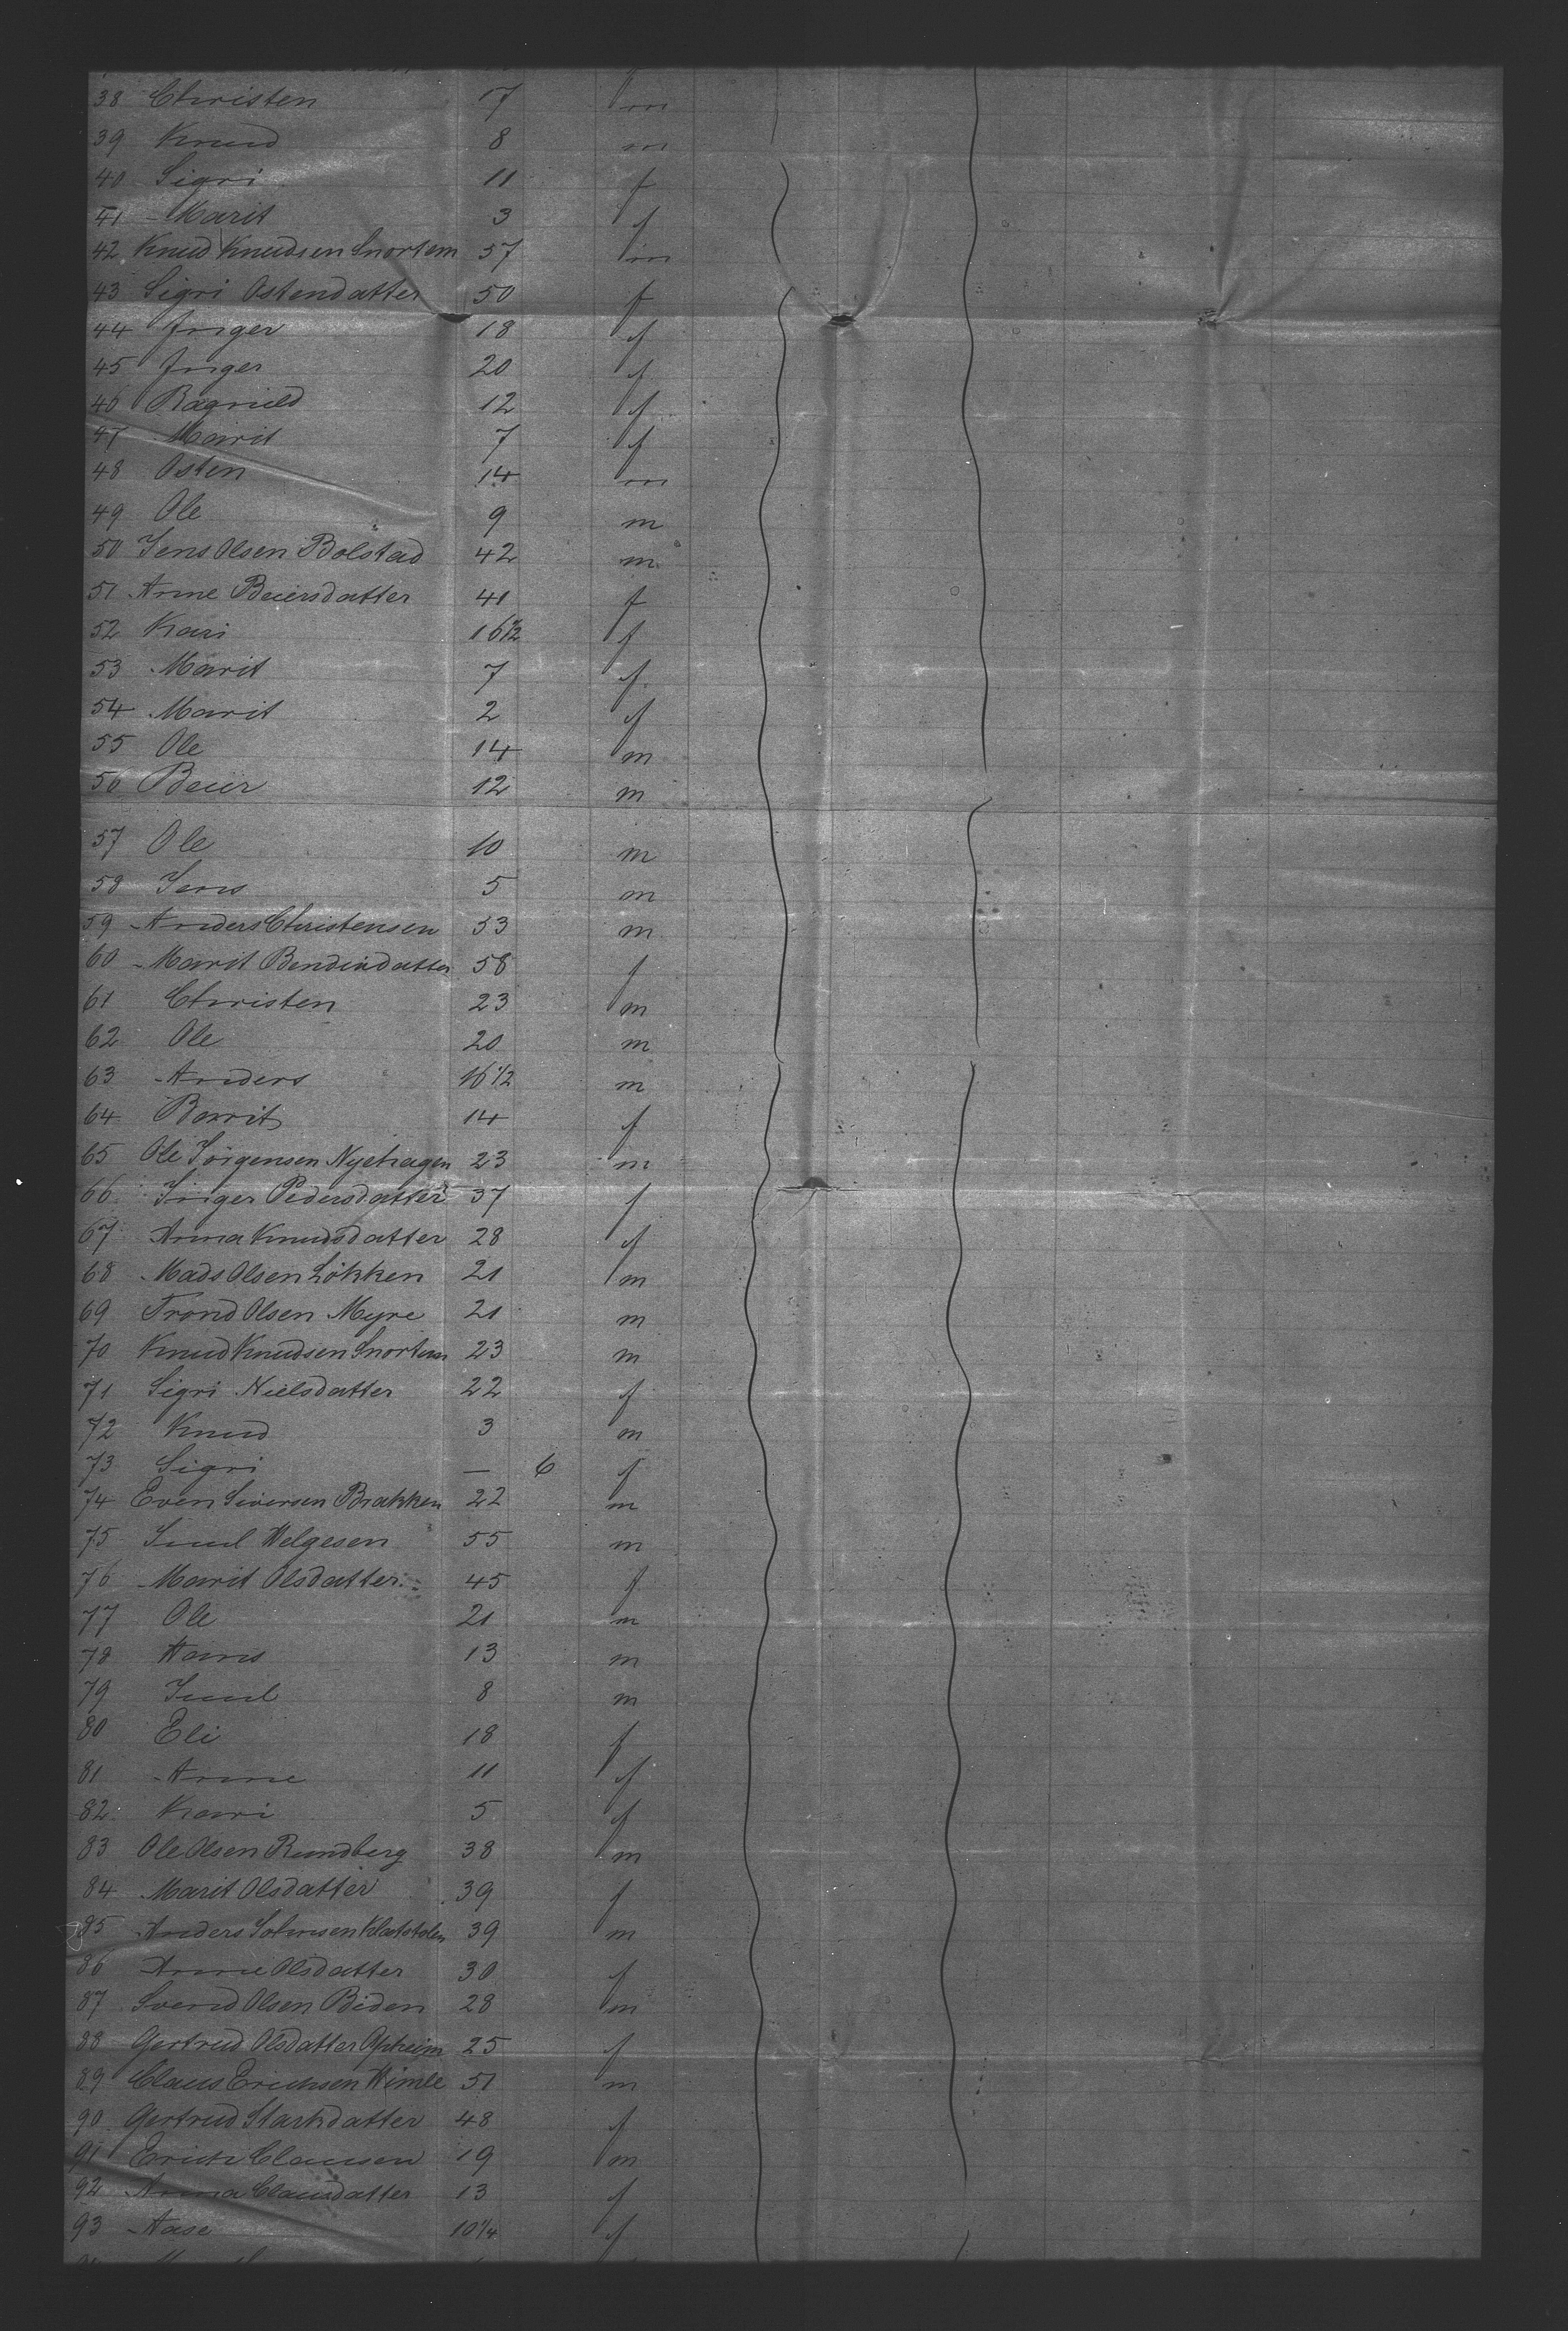 38 Christen 17 m
39 Knud 8 m
40 Sigri 11 f
41 Marit 3 f
42 Knud Knudsen Snortem 57 m
43 Sigri Ostendatter 50 f
44 Inger 18 f
45 Inger 20 f
46 Ragnild 12 f
47 Marit 7 f
48 Osten 14 m
49 Ole 9 m
50 Jens Olsen Bolstad 42 m
51 Anne Beiersdatter 41 f
52 Kari 16 1/2 f
53 Marit 7 f
54 Marit 2 f
55 Ole 14 m
56 Beier 12 m
57 Ole 10 m
58 Jens 5 m
59 Anders Christensen 53 m
60 Marit Bendixdatter 58 f
61 Christen 23 m
62 Ole 20 m
63 Anders 16 1/2 m
64 Barrit 14 f
65 Ole Jörgensen Nyehagen 23 m
66 Inger Pedersdatter 37 f
67 Anna Knudsdatter 28 f
68 Mads Olsen Lökken 21 m
69 Trond Olsen Myre 21 m
70 Knud Knudsen Snortem 23 m
71 Sigri Nielsdatter 22 f
72 Knud 3 m
73 Sigri — 6 f
74 Even Siversen Brakken 22 m
75 Juul Helgesen 55 m
76 Marit Olsdatter 45 f
77 Ole 21 m
78 Hans 13 m
79 Juul 8 m
80 Eli 18 f
81 Anne 11 f
82 Kari 5 f
83 Ole Olsen Rundberg 38 m
84 Marit Olsdatter 39 f
85 Anders Johnsen 39 m
86 Anne Olsdatter 30 f
87 Svend Olsen Biden 28 m
88 Gertrud Olsdatter Opheim 25 f
89 Claus Erichsen Himle 51 m
90 Gertrud Starkdatter 48 f
91 Erich Clausen 19 m
92 Anna Clausdatter 13 f
93 Aase 10 1/4 f